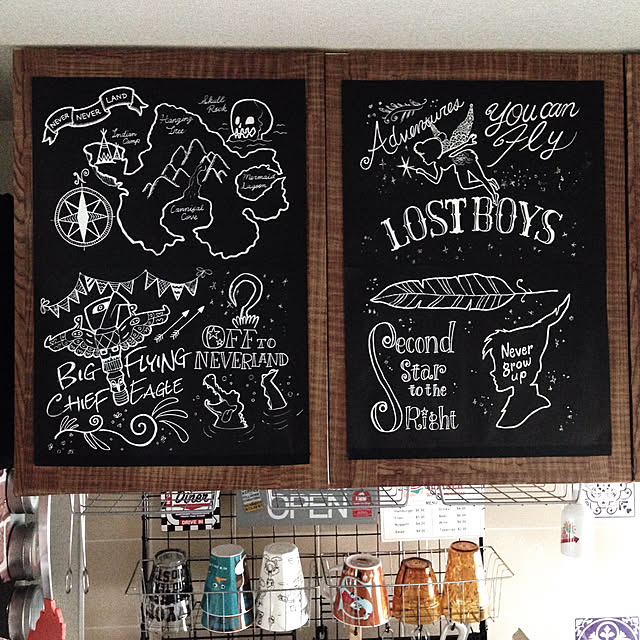 NEVER NEVER LAND
Skull Rock
Hanging Tree
Indian Camp
Mermaid Lagoon
Cannibal Cove
OFF TO
NEVERLAND
BIG FLYING
CHIEF EAGLE
Adventures
you can
Fly
LOST BOYS
Second
Star
to the
Right
Never
grow
up
Diner
DRIVE IN
OPEN
MENU